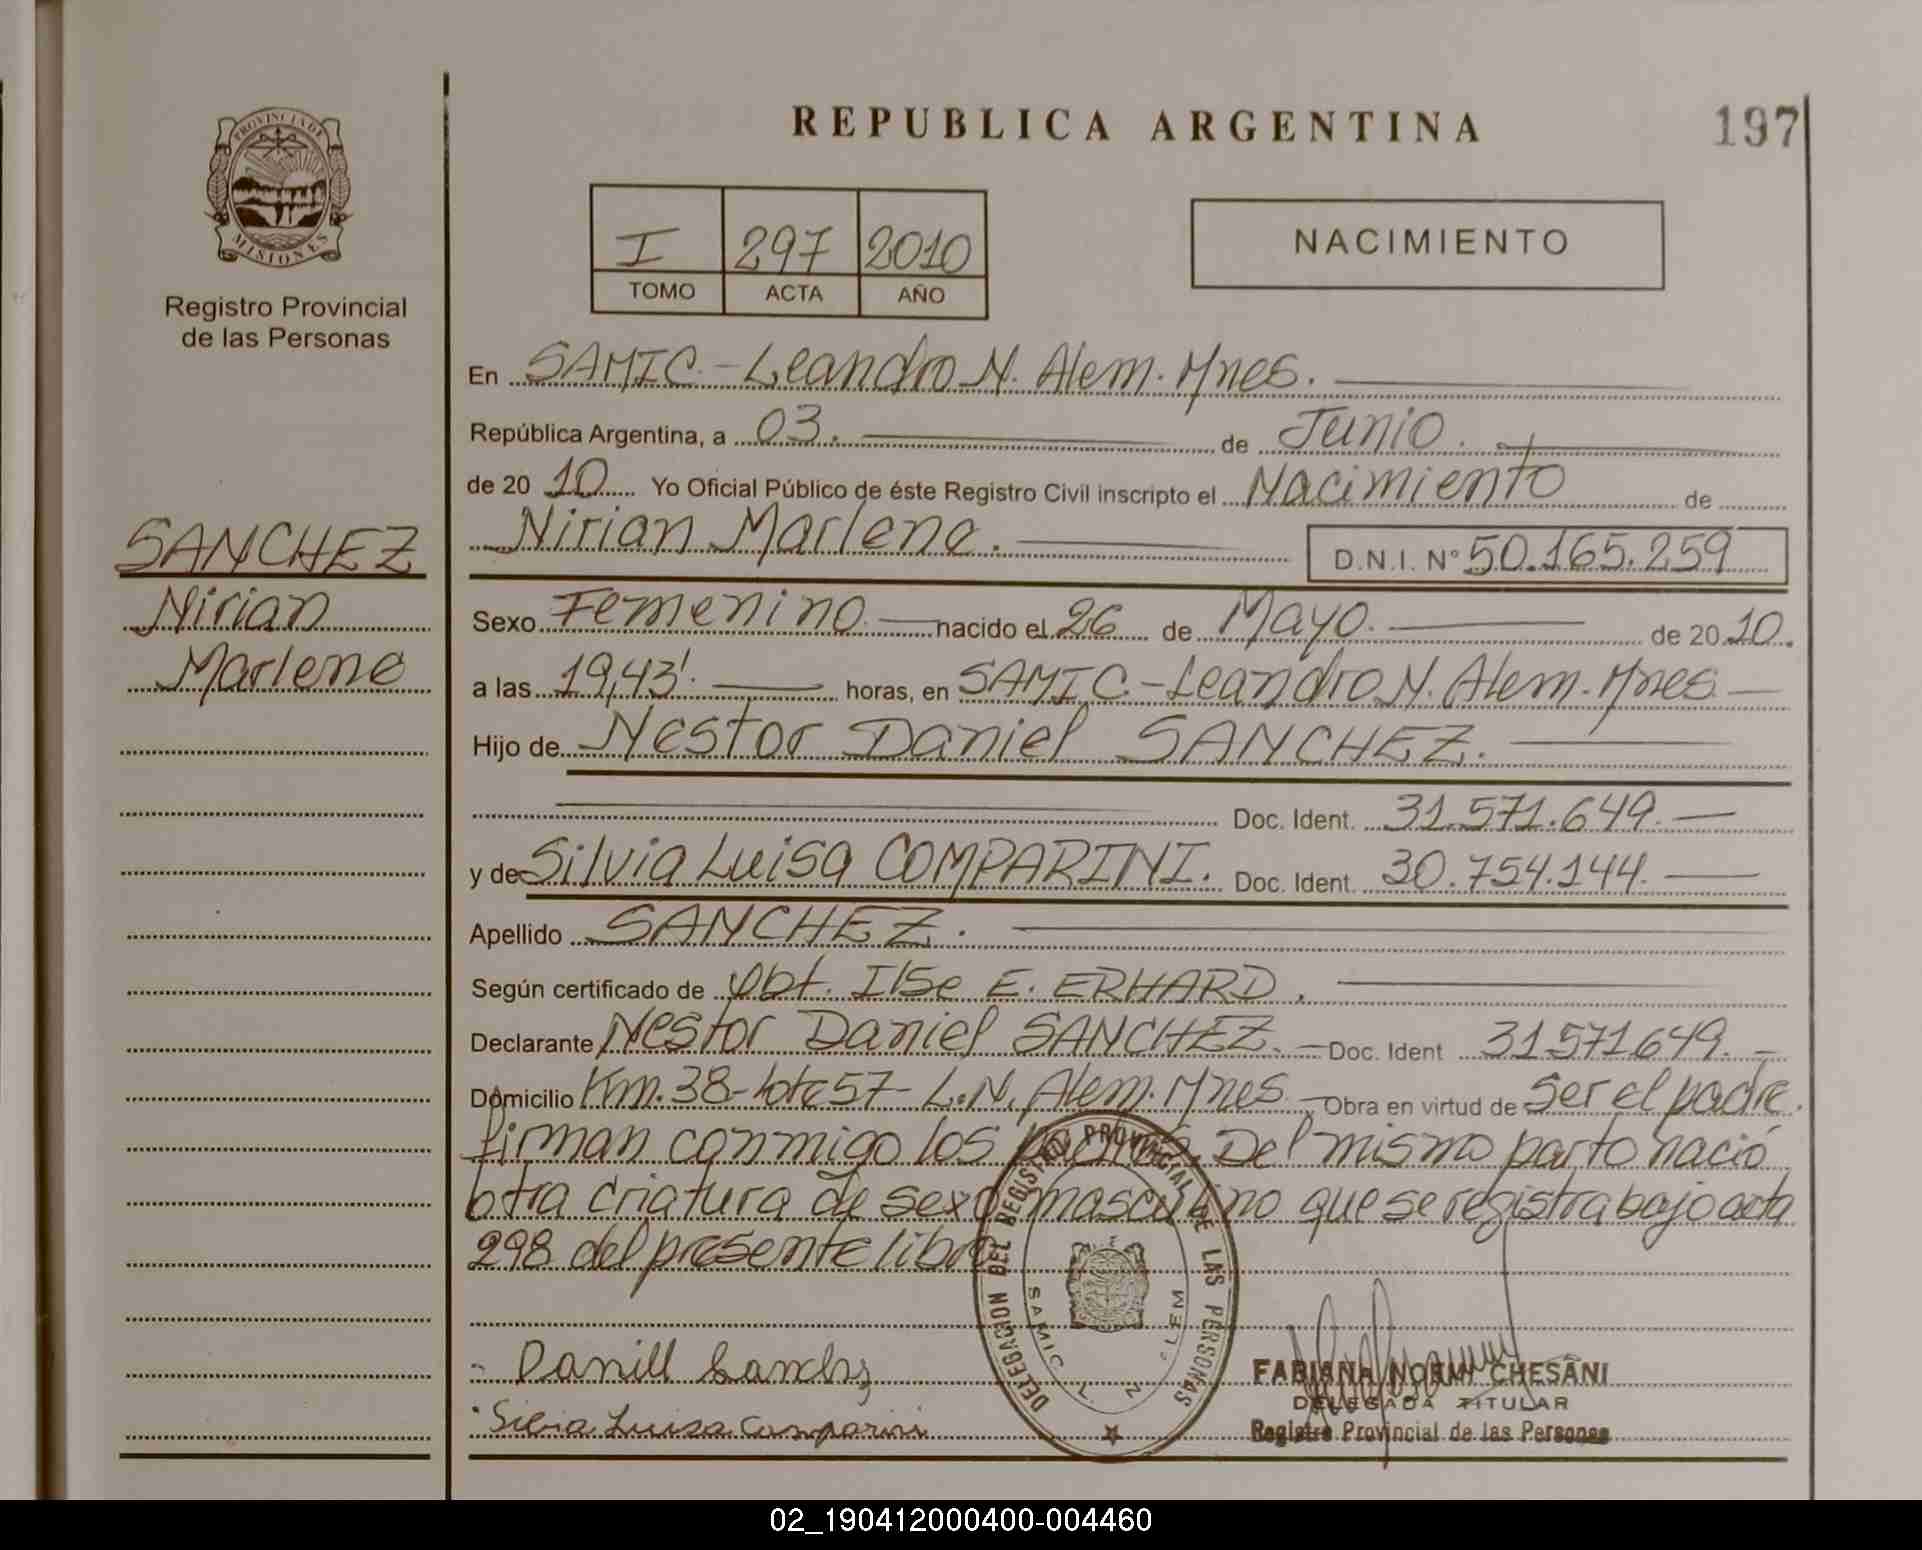 REPUBLICA ARGENTINA
197
PROVINCIA DE MISIONES
Registro Provincial
de las Personas
I 297 2010
TOMO ACTA AÑO
NACIMIENTO
En SAMIC.-Leandro N. Alem. Mnes.
República Argentina, a 03. de Junio.
de 2010 Yo Oficial Público de éste Registro Civil inscripto el Nacimiento de
Nirian Marlene.
D.N.I. N° 50.165.259
SANCHEZ
Nirian
Marlene
Sexo Femenino nacido el 26 de Mayo. de 2010.
a las 19,43'. horas, en SAMIC.-Leandro N. Alem. Mnes.
Hijo de Nestor Daniel SANCHEZ.
Doc. Ident. 31.571.649.
y de Silvia Luisa COMPARINI. Doc. Ident. 30.754.144.
Apellido SANCHEZ.
Según certificado de Obt. Ilse E. ERHARD.
Declarante Nestor Daniel SANCHEZ. Doc. Ident 31571649.
Domicilio Km.38-lote57-L.N. Alem. Mnes Obra en virtud de ser el padre.
firman conmigo los padres. Del mismo parto nació
otra criatura de sexo masculino que se registra bajo acta
298 del presente libro
DELEGACION DEL REGISTRO PROVINCIAL DE LAS PERSONAS
SAMIC L. N. ALEM
Silvia Luisa Comparini
FABIANA NOEMI CHESANI
DELEGADA TITULAR
Registro Provincial de las Personas
02_190412000400-004460